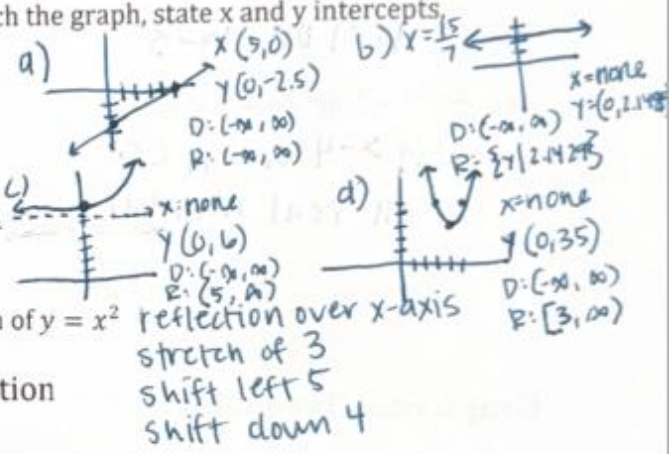 ch the graph, state x and y intercepts,
a)
x (5,0)
y (0,-2.5)
D: (-∞, ∞)
R: (-∞, ∞)
b) x = 15/7
x=none
y=(0,2.14
D: (-∞, ∞)
R: {y|2.1429}
c)
x: none
y (0,6)
D: (-∞, ∞)
R: (5, ∞)
d)
x=none
y (0,35)
D: (-∞, ∞)
R: [3, ∞)
of y = x² reflection over x-axis
stretch of 3
tion shift left 5
shift down 4